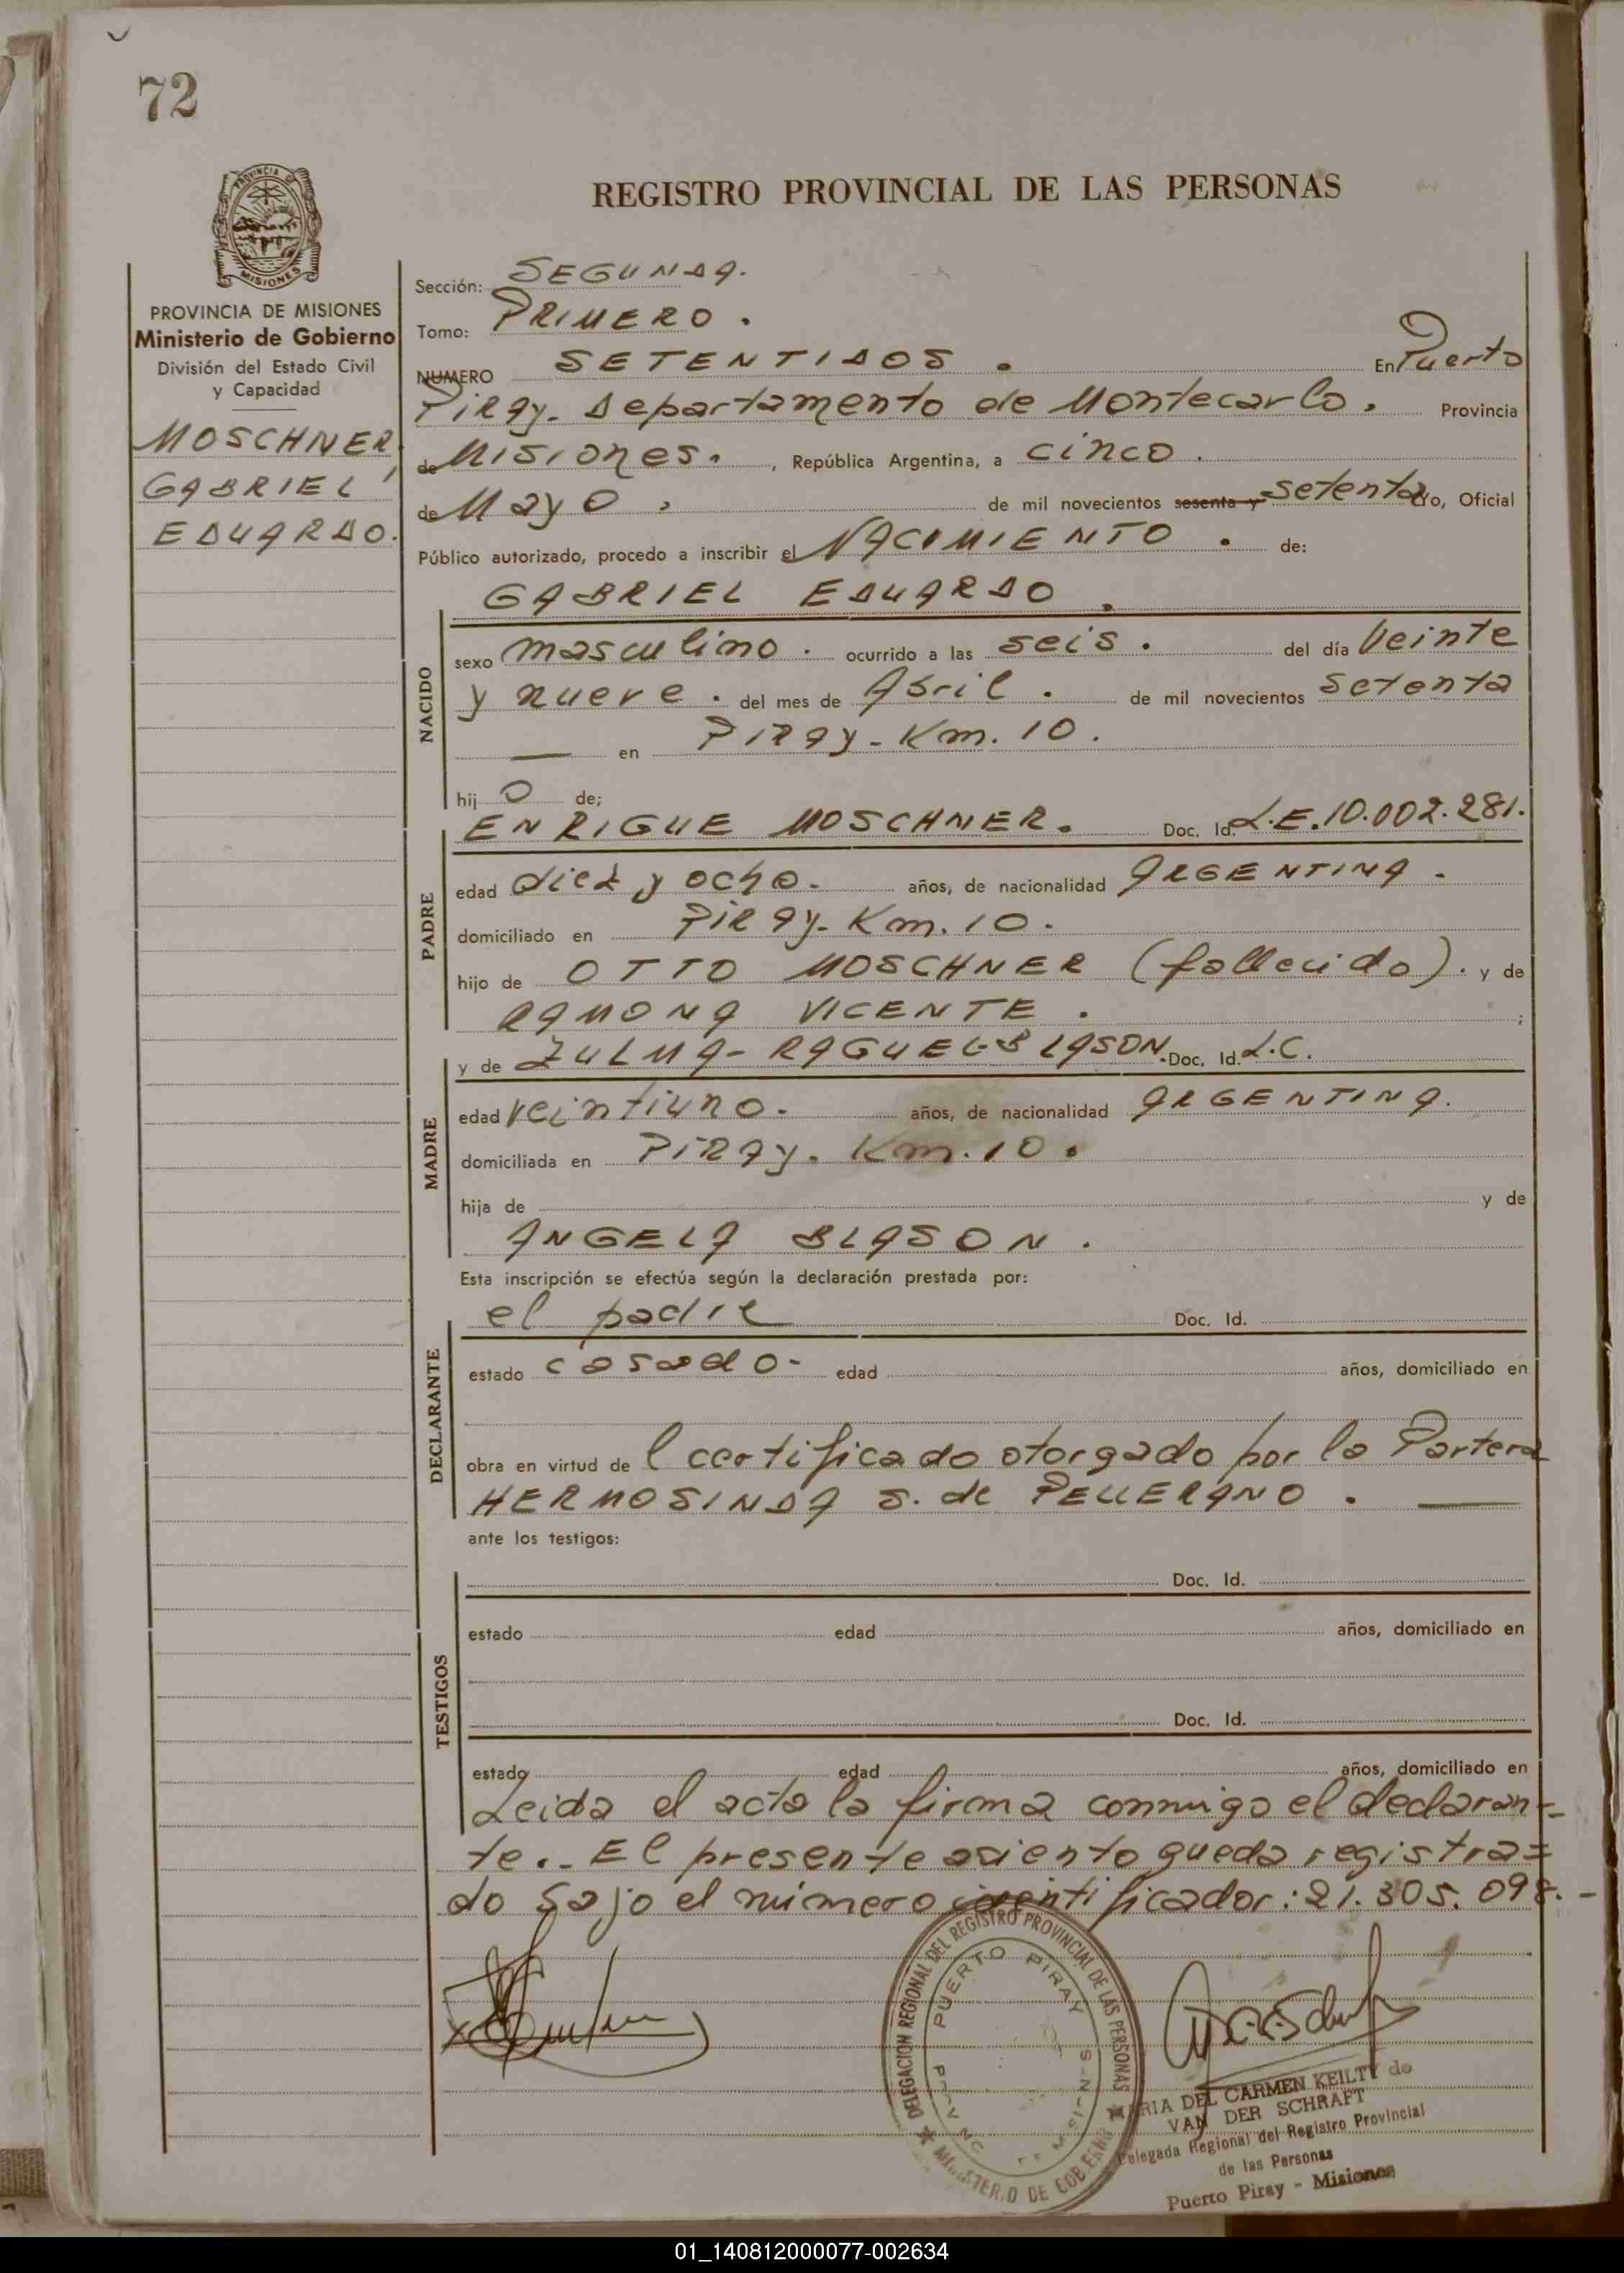 72
PROVINCIA DE
MISIONES
REGISTRO PROVINCIAL DE LAS PERSONAS
PROVINCIA DE MISIONES
Ministerio de Gobierno
División del Estado Civil
y Capacidad
MOSCHNER,
GABRIEL
EDUARDO.
Sección: SEGUNDA.
Tomo: PRIMERO.
NUMERO SETENTIDOS. En Puerto
Piray. Departamento de Montecarlo. Provincia
de Misiones. , República Argentina, a cinco.
de Mayo, de mil novecientos sesenta y setenta Yo, Oficial
Público autorizado, procedo a inscribir el NACIMIENTO. de:
GABRIEL EDUARDO.
NACIDO
sexo masculino. ocurrido a las seis. del día veinte
y nueve. del mes de Abril. de mil novecientos setenta
— en Piray-Km. 10.
hij o de;
ENRIQUE MOSCHNER. Doc. Id. L.E.10.002.281.
PADRE
edad diez y ocho. años, de nacionalidad ARGENTINA.
domiciliado en Piray-Km. 10.
hijo de OTTO MOSCHNER (fallecido). y de
RAMONA VICENTE. ;
y de ZULMA-RAQUEL-BLASON. Doc. Id. L.C.
MADRE
edad veintiuno. años, de nacionalidad ARGENTINA.
domiciliada en Piray. Km. 10.
hija de y de
ANGELA BLASON.
Esta inscripción se efectúa según la declaración prestada por:
el padre Doc. Id.
DECLARANTE
estado casado- edad años, domiciliado en
obra en virtud de l certificado otorgado por la Partera
HERMOSINDA S. de PELLERANO. —
ante los testigos:
Doc. Id.
TESTIGOS
estado edad años, domiciliado en
Doc. Id.
estado edad años, domiciliado en
Leida el acta la firma conmigo el declaran-
te.- El presente asiento queda registra=
do bajo el número identificador: 21.305.098.-
DELEGACION REGIONAL DEL REGISTRO PROVINCIAL DE LAS PERSONAS
PUERTO PIRAY
MINISTERIO DE GOBIERNO
MARIA DEL CARMEN KEILTY de
VAN DER SCHRAFT
Delegada Regional del Registro Provincial
de las Personas
Puerto Piray - Misiones
01_140812000077-002634